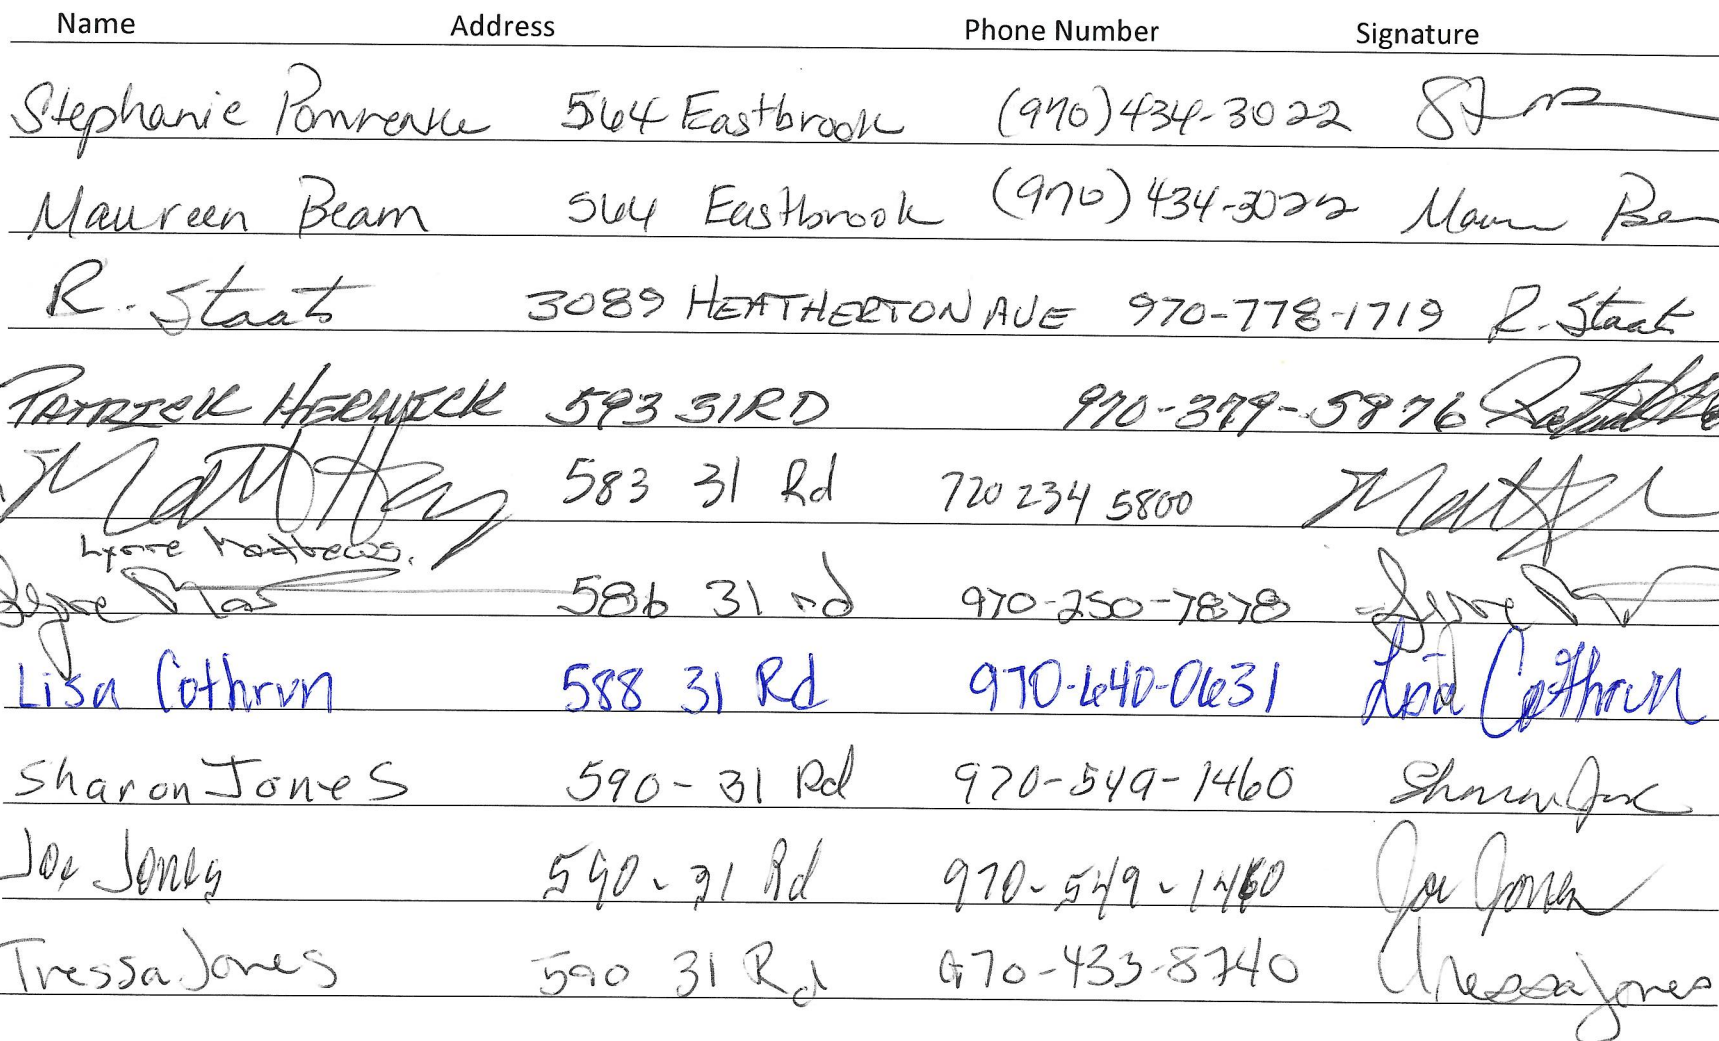 Name Address Phone Number Signature
Stephanie Pomrenke 564 Eastbrook (970) 434-3022
Maureen Beam 564 Eastbrook (970) 434-3022 Maur Be
R. Staats 3089 HEATHERTON AVE 970-778-1719 R. Staats
PATRICK HERWICK 593 31 RD 970-379-5876
Matt Hay 583 31 Rd 720 234 5800
Lynne Matthews.
Lynne 586 31 rd 970-250-7878 Lynne
Lisa Cothrun 588 31 Rd 970-640-0631 Lisa Cothrun
Sharon Jones 590-31 Rd 970-549-1460 Sharon Jones
Joe Jones 590-31 Rd 970-549-1460 Joe Jones
Tressa Jones 590 31 Rd 970-433-8740 Tressa Jones